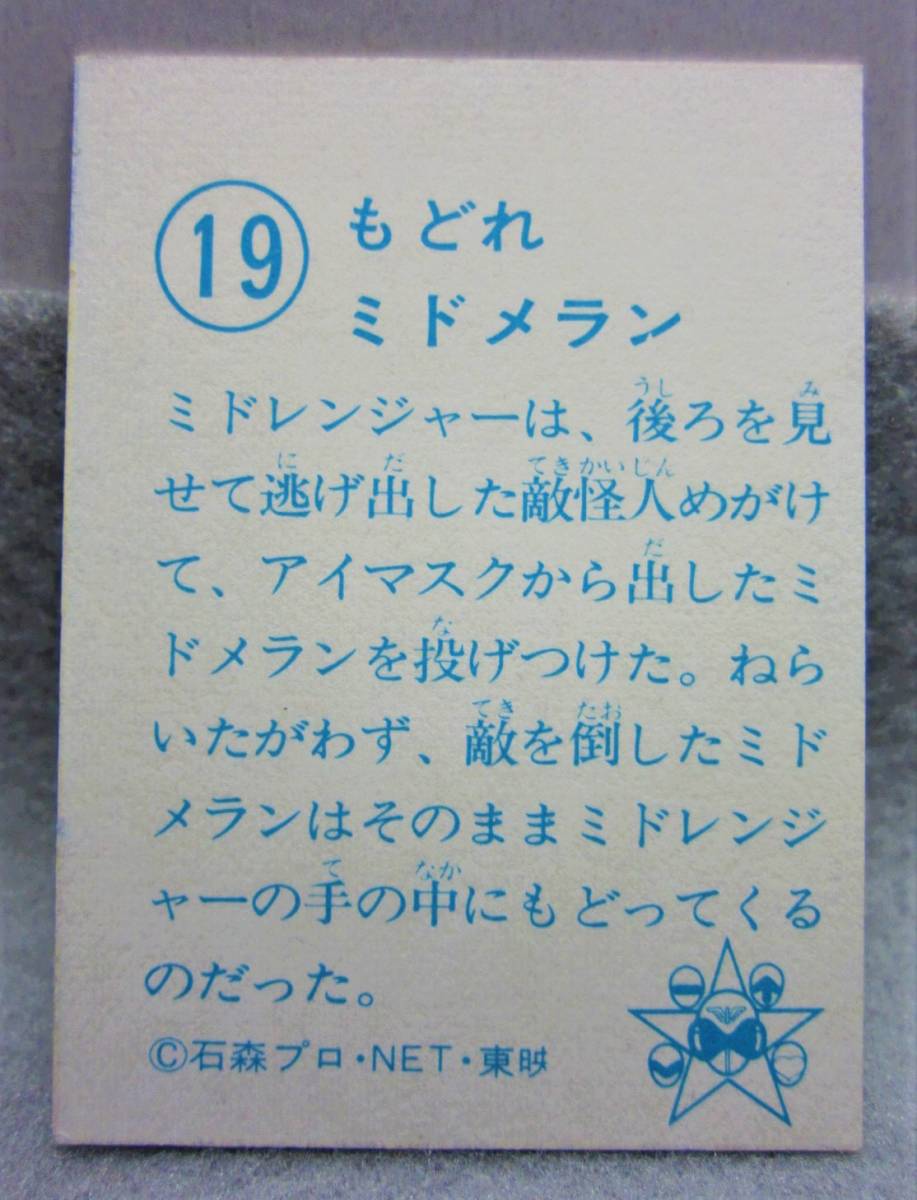 19
もどれ
ミドメラン
ミドレンジャーは、後ろを見
せて逃げ出した敵怪人めがけ
て、アイマスクから出したミ
ドメランを投げつけた。ねら
いたがわず、敵を倒したミド
メランはそのままミドレンジ
ャーの手の中にもどってくる
のだった。
©石森プロ・NET・東映